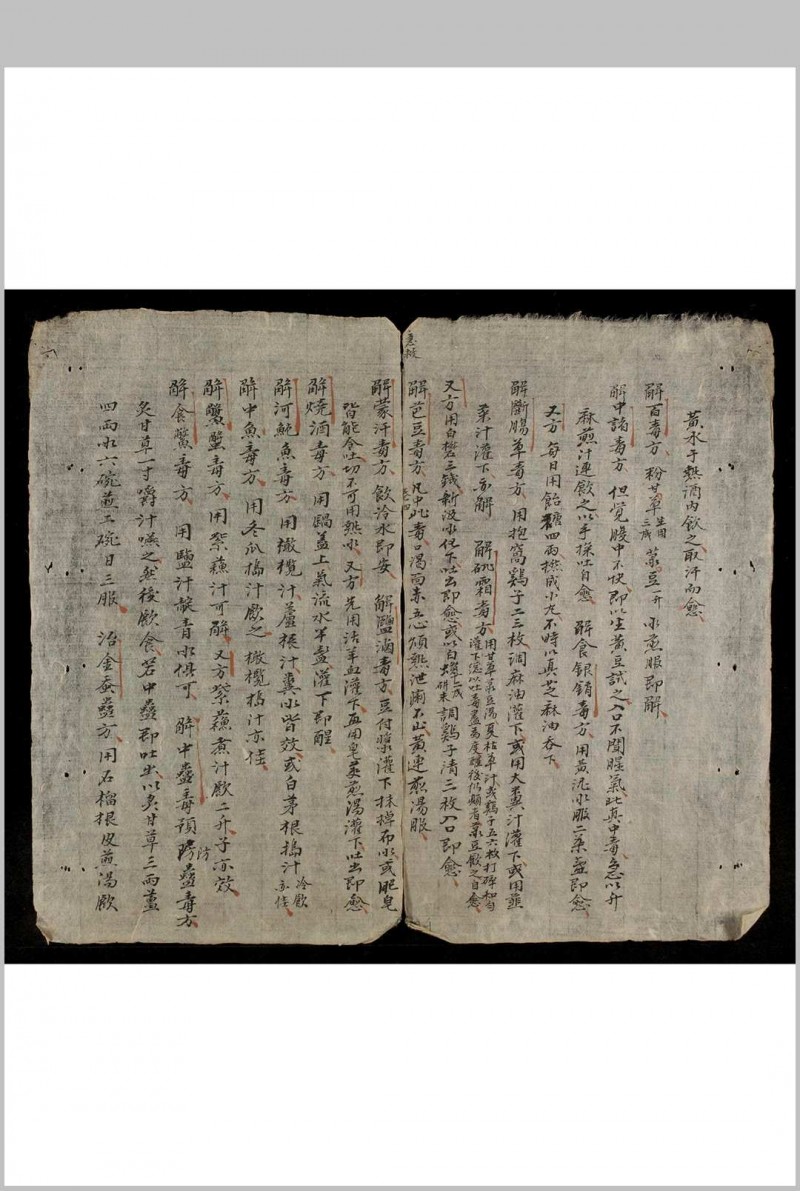 黃水于熱酒內飲之取汗而愈
解百毒方 粉甘草生用三戔 菉豆一升 水煎服即解
解中諸毒方 但覺腹中不快即以生黃豆試之入口不聞腥氣此真中毒急以升
麻煎汁連飲之以手探吐自愈 解食銀銷毒方 用黃泥水服二茶盃即愈
又方 每日用飴糖四兩撚成小丸不時以真芝麻油吞下
解斷腸草毒方 用抱窩鷄子二三枚調麻油灌下或用大糞汁灌下或用韮
菜汁灌下亦解 解砒霜毒方 用甘草菉豆湯夏枯草汁或鷄子五六枚打碎和勻灌下總以吐毒盡為度醒後仍須煮菉豆飲之自愈
又方用白礬三錢新汲水化下吐出即愈或以白蠟七戔研末調鷄子清三枚入口即愈
解芭豆毒方 凡中此毒口渴面赤五心煩熱泄瀉不止黃連煎湯服
急救
解蒙汗毒方 飲冷水即安 解鹽滷毒方 豆付漿灌下抹棹布水或肥皂
皆能令吐切不可用熱水 又方先用活羊血灌下再用皂荚煎湯灌下吐出即愈
解燒酒毒方 用鍋盖上氣流水半盞灌下即醒
解河魨魚毒方 用橄欖汁蘆根汁糞水皆效或白茅根搗汁冷飲亦佳
解中魚毒方 用冬瓜搗汁飲之 橄欖搗汁亦佳
解鱉蟹毒方 用紫蘓汁可解 又方紫蘓煮汁飲二升子亦效
解食鱉毒方 用鹽汁靛青水俱可 解中蠱毒預防蠱毒方
防
炙甘草一寸嚼汁嚥之然後飲食若中蠱即吐出以炙甘草三兩薑
四兩水六碗煎二碗日三服 治金蚕蠱方 用石榴根皮煎湯飲